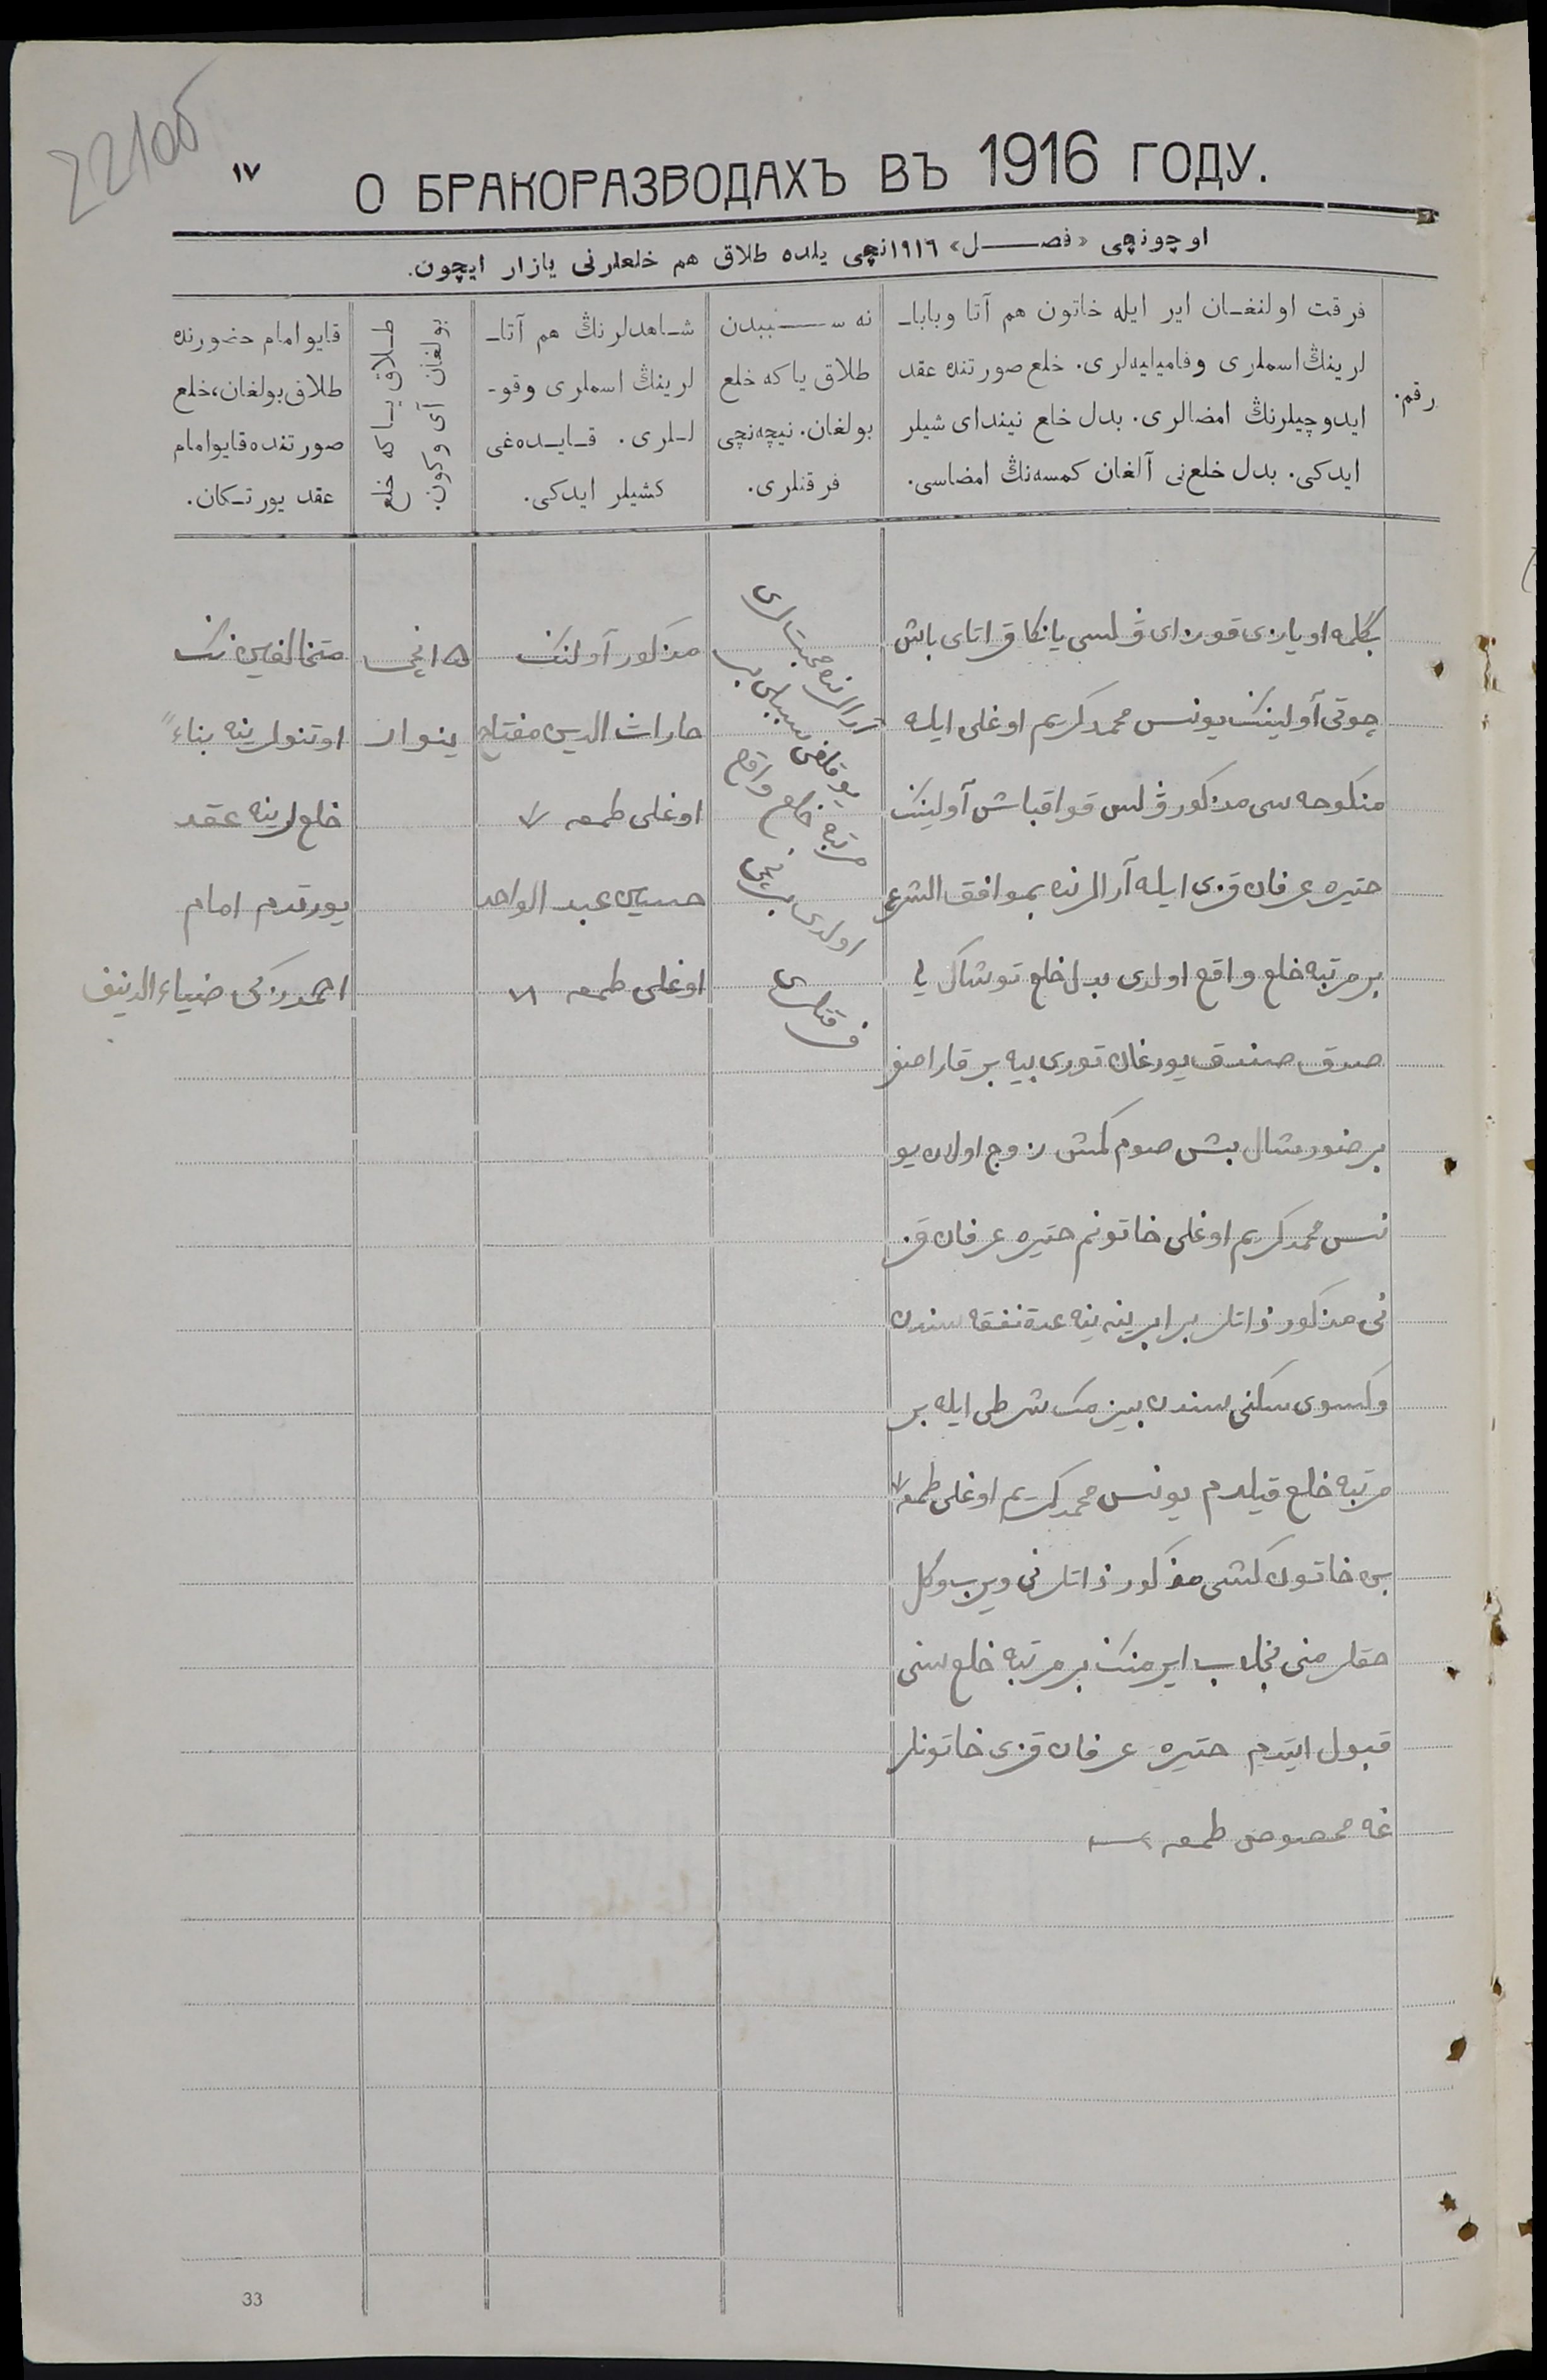 221об
١٧
О БРАКОРАЗВОДАХЪ ВЪ 1916 ГОДУ.
اوچونچی «فصـــل» ١٩١٦نچی یلده طلاق هم خلعلرنی یازار ایچون.
رقم.
فرقت اولنغـان ایر ایله خاتون هم آتا وباباـ
لرینڭ اسملری وفامیلیه‌لری. خلع صورتنده عقد
ایدوچیلرنڭ امضالری. بدل خلع نیندای شیلر
ایدکی. بدل خلع‌نی آلغان کمسه‌نڭ امضاسی.
نه ســـببدن
طلاق یاکه خلع
بولغان. نیچه‌نچی
فرقتلری.
شـاهدلرنڭ هم آتاـ
لرینڭ اسملری وقوـ
لـلری. قـایـده‌غی
کشیلر ایدکی.
طـلاق یـاکه خلع
بولغان آی وکون.
قایو امام حضورنده
طلاق بولغان، خلع
صورتنده قایو امام
عقد یورتـکان.
چوتی آولینڭ یونس محمدکریم اوغلی ایله
منکوحه سی مذکور ڤلس قواقباش آولینڭ
عرفان قزی ایله آرالرنده بموافق الشرع
بر مرتبه خلع واقع اولدی بدل خلع
صندق یورغان
بر شال بش صوم کمش زوج اولان یو
نس محمدکریم اوغلی خاتونم عرفان قز
نی مذکور ذاتلر برابرینه ینه عدة نفقه سندن
وکسوی سکنی سندن بیزمک شرطی ایله بر
مرتبه خلع قیلدم یونس محمدکریم اوغلی طمعه
خاتون کشی مذکور ذاتلرنی ویرب وکل
حقلرمنی ایرمنڭ بر مرتبه خلع سنی
قبول ایتدم عرفان قزی خاتونلر
غه مخصوص طمعه
آرالرنده محبتلری
یوقلقی سببلی بر
مرتبه خلع واقع
اولدی
فرقتلری
مذکور آولنڭ
مفتاح
اوغلی طمعه
حسین عبد الواحد
اوغلی طمعه
١٥ نچی
ینوار
متخالفین نڭ
اوتنولرینه بناءً
خلع لرینه عقد
یورتدم امام
احمدزکی ضیاءالدینف
33